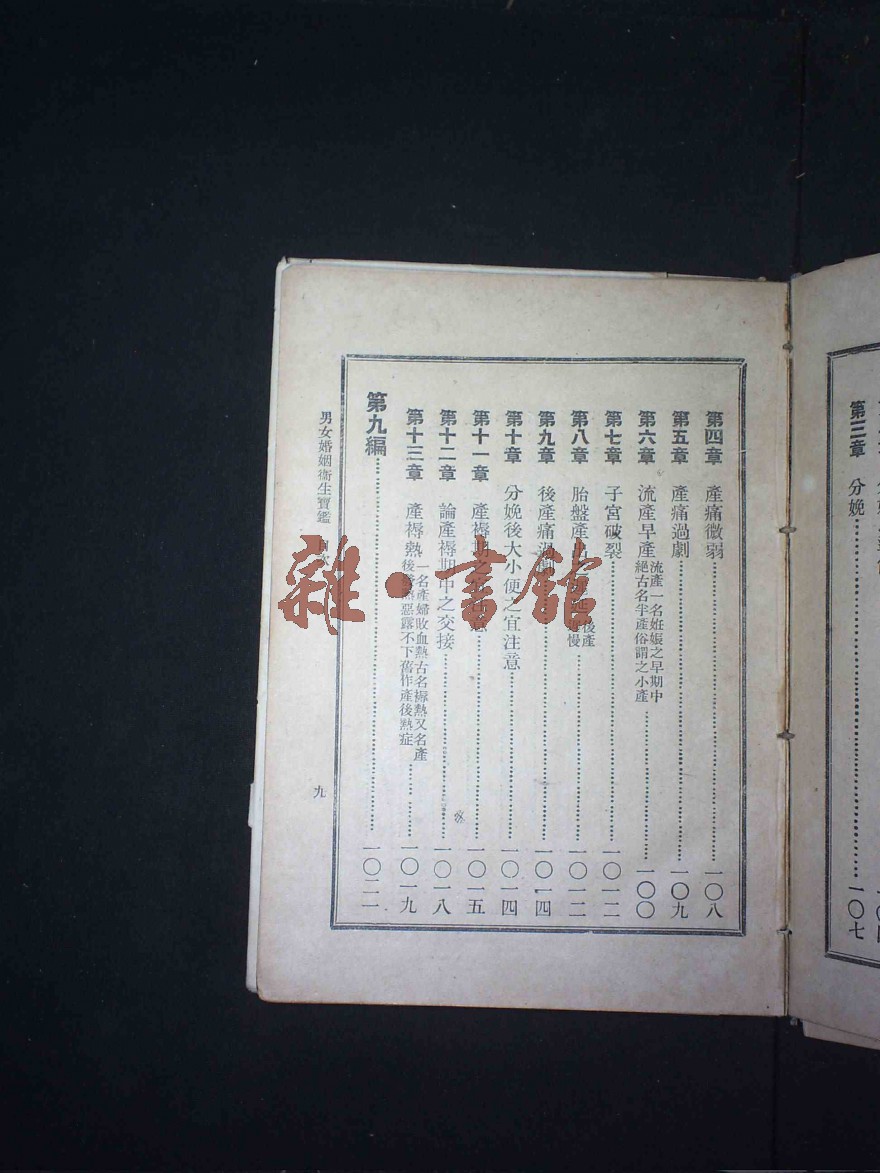 第三章 分娩 一〇七
第四章 產痛微弱 一〇八
第五章 產痛過劇 一〇九
第六章 流產早產 流產一名妊娠之早期中絕古名半產俗謂之小產 一〇〇
第七章 子宮破裂 一〇一二
第八章 胎盤產出之 後產 慢 一〇一二
第九章 後產痛過劇 一〇一四
第十章 分娩後大小便之宜注意 一〇一四
第十一章 產褥期之 意 一〇一五
第十二章 論產褥期中之交接 一〇一八
第十三章 產褥熱 一名產婦敗血熱古名褥熱又名產後 熱惡露不下舊作產後熱症 一〇一九
第九編 一〇二一
男女婚姻衞生寶鑑 目次
九
雜·書館